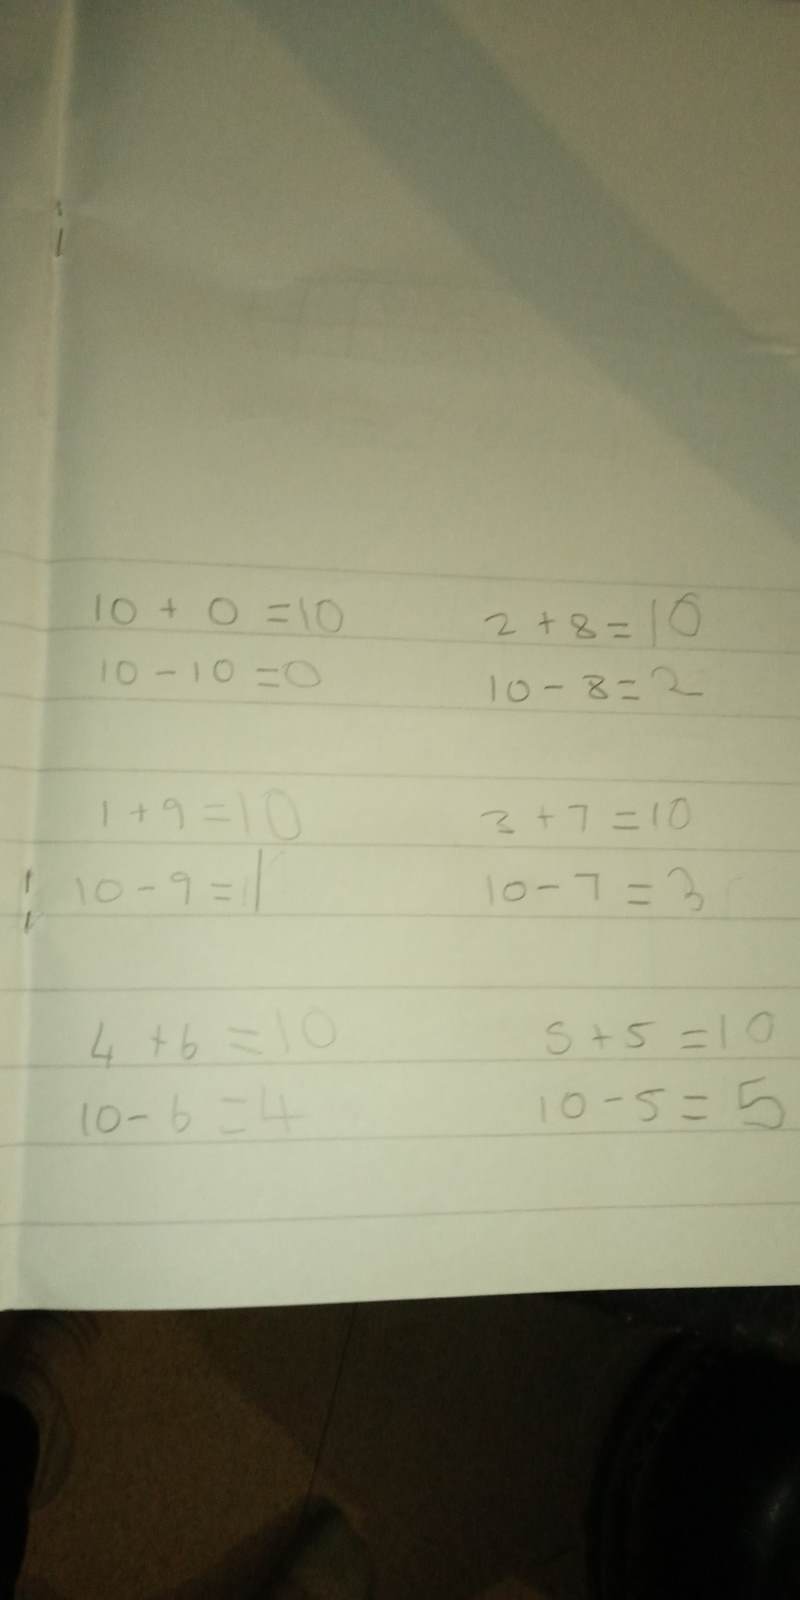 10 + 0 = 10
10 - 10 = 0
2 + 8 = 10
10 - 8 = 2
1 + 9 = 10
10 - 9 = 1
3 + 7 = 10
10 - 7 = 3
4 + 6 = 10
10 - 6 = 4
5 + 5 = 10
10 - 5 = 5